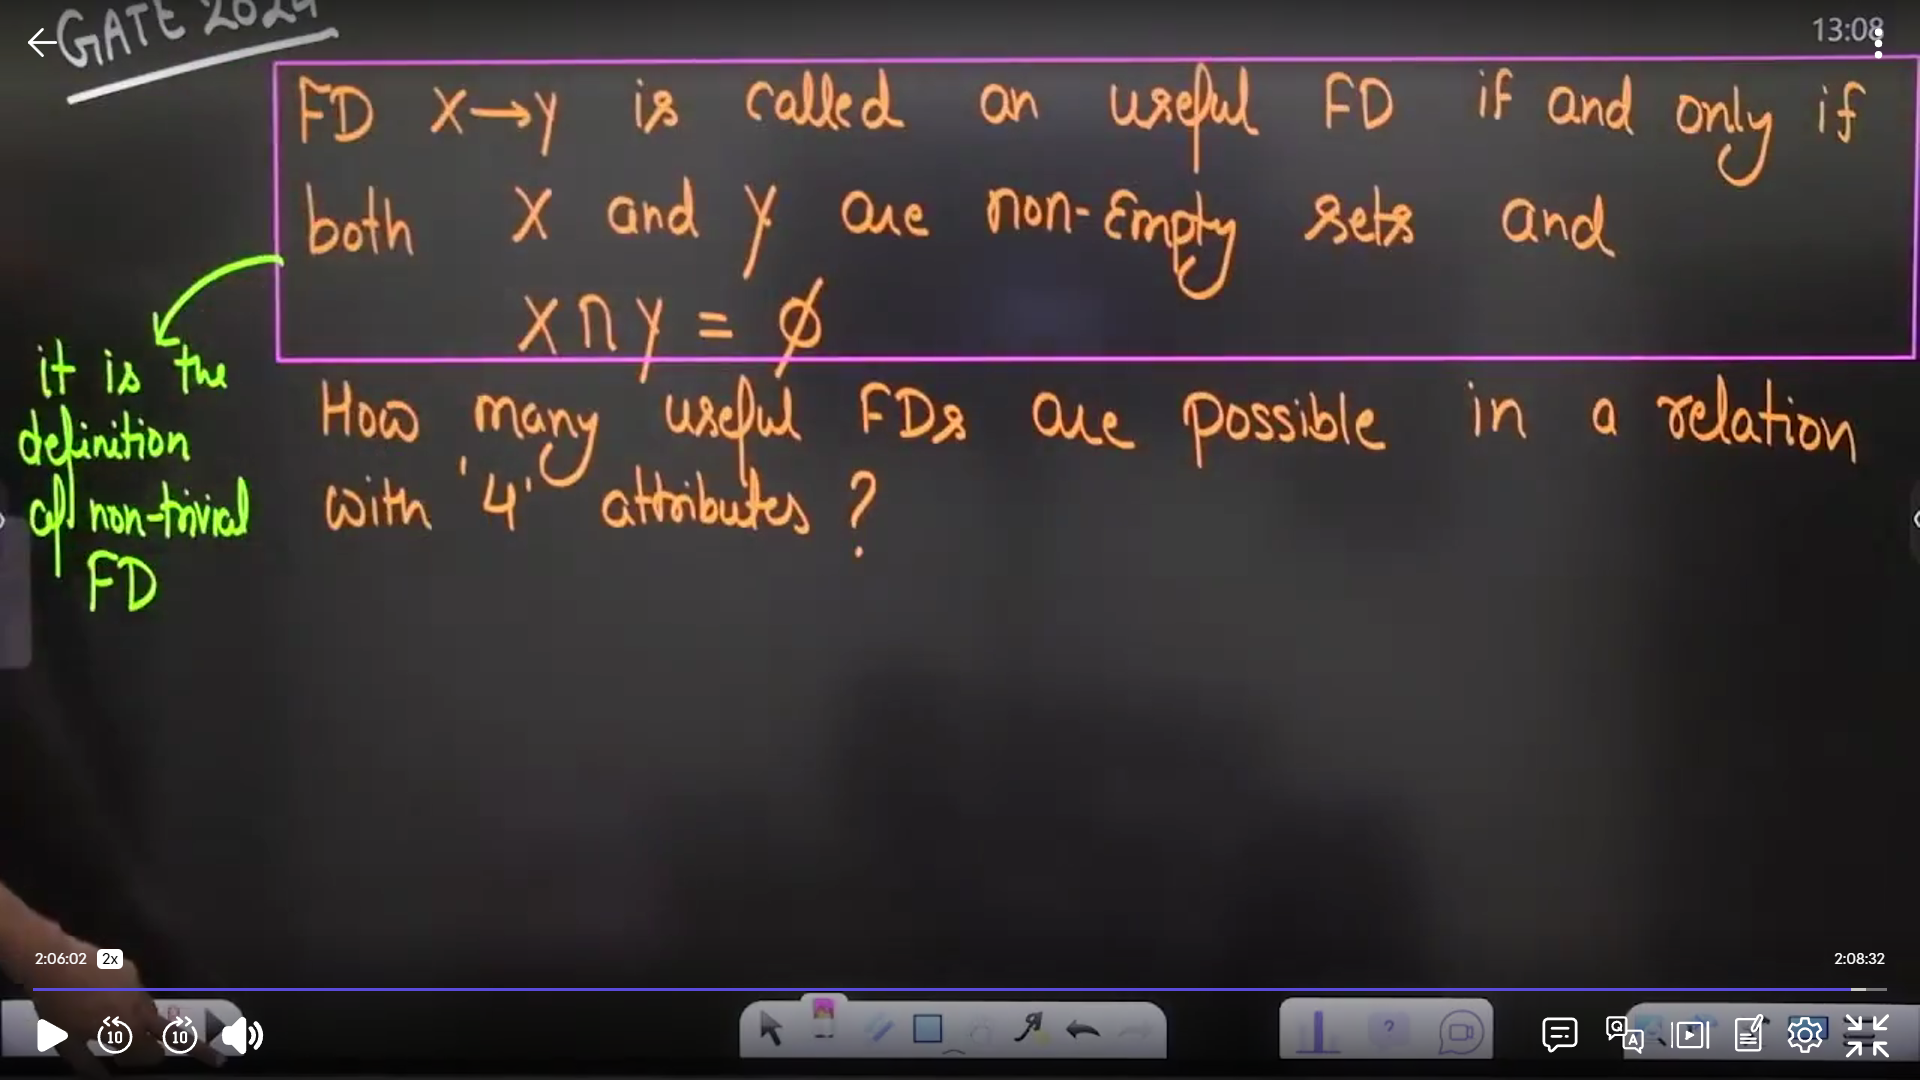 GATE 2024
13:08
FD X→Y is called an useful FD if and only if
both X and Y are non-Empty sets and
X∩Y = ϕ
it is the
definition
of non-trivial
FD
How many useful FDs are possible in a relation
with '4' attributes ?
2:06:02 2x
2:08:32
10 10